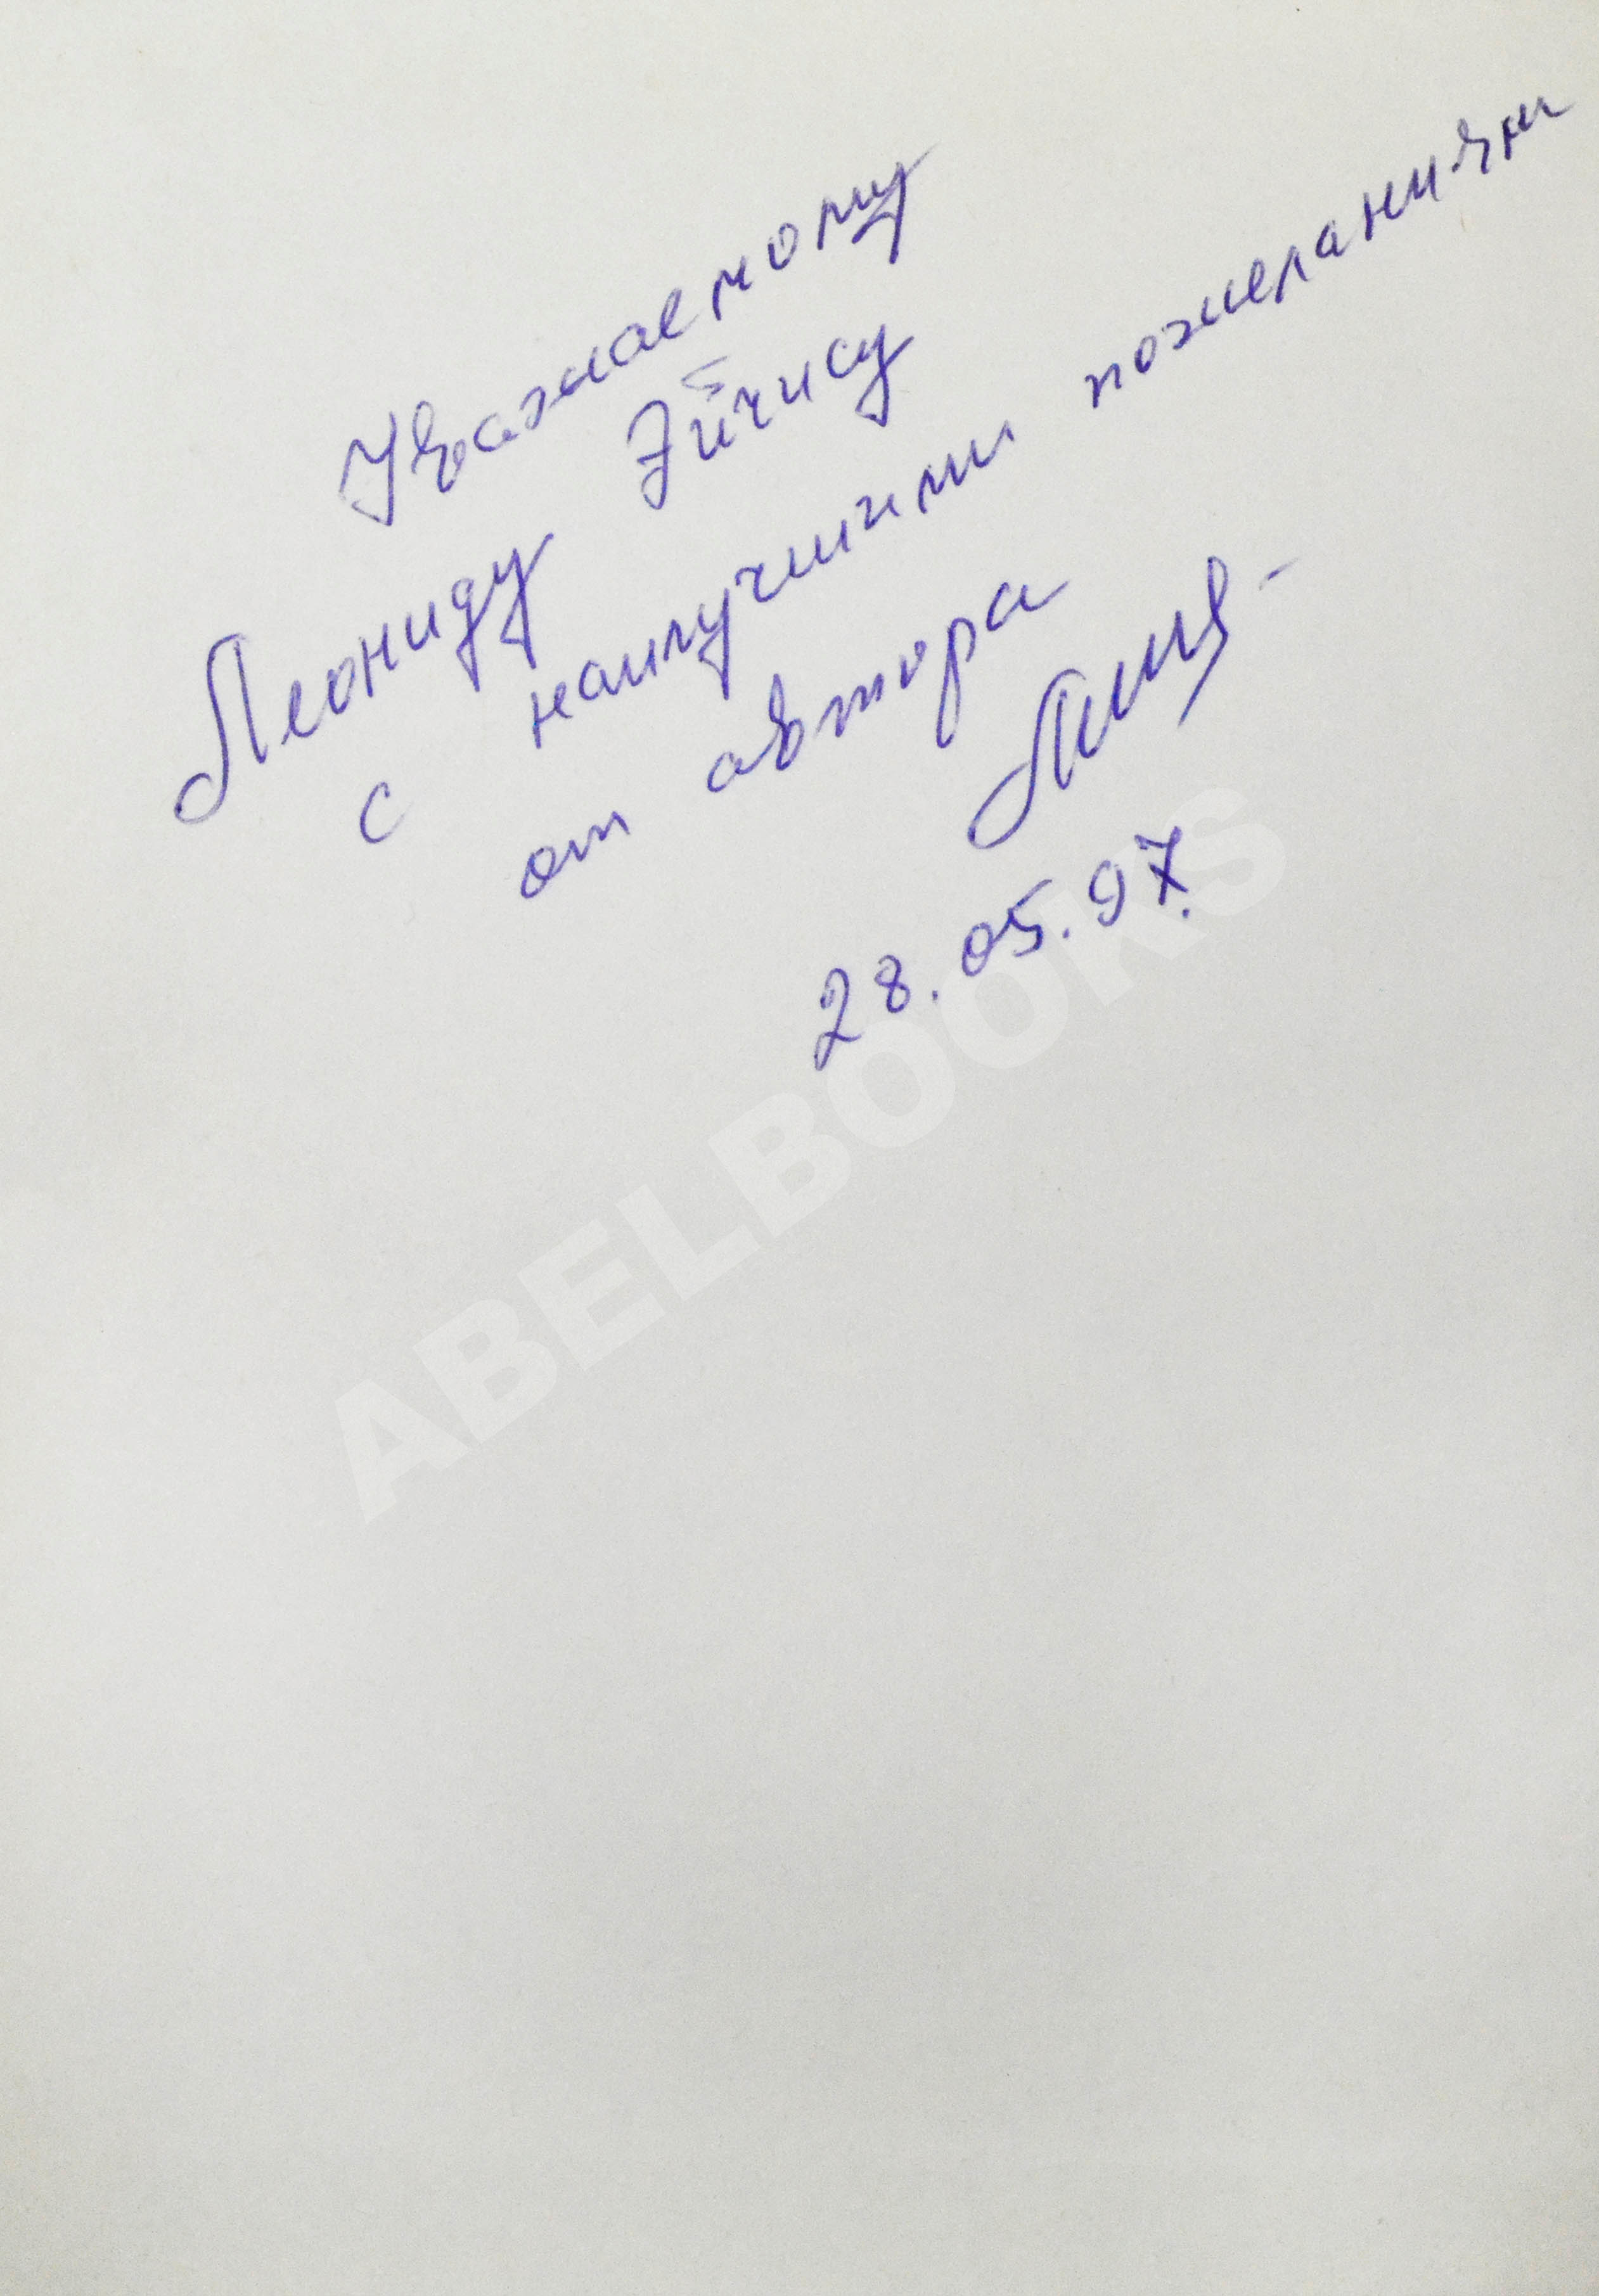 Уважаемому
Леониду Эйчису
с наилучшими пожеланиями
от автора
28.05.97.
ABELBOOKS